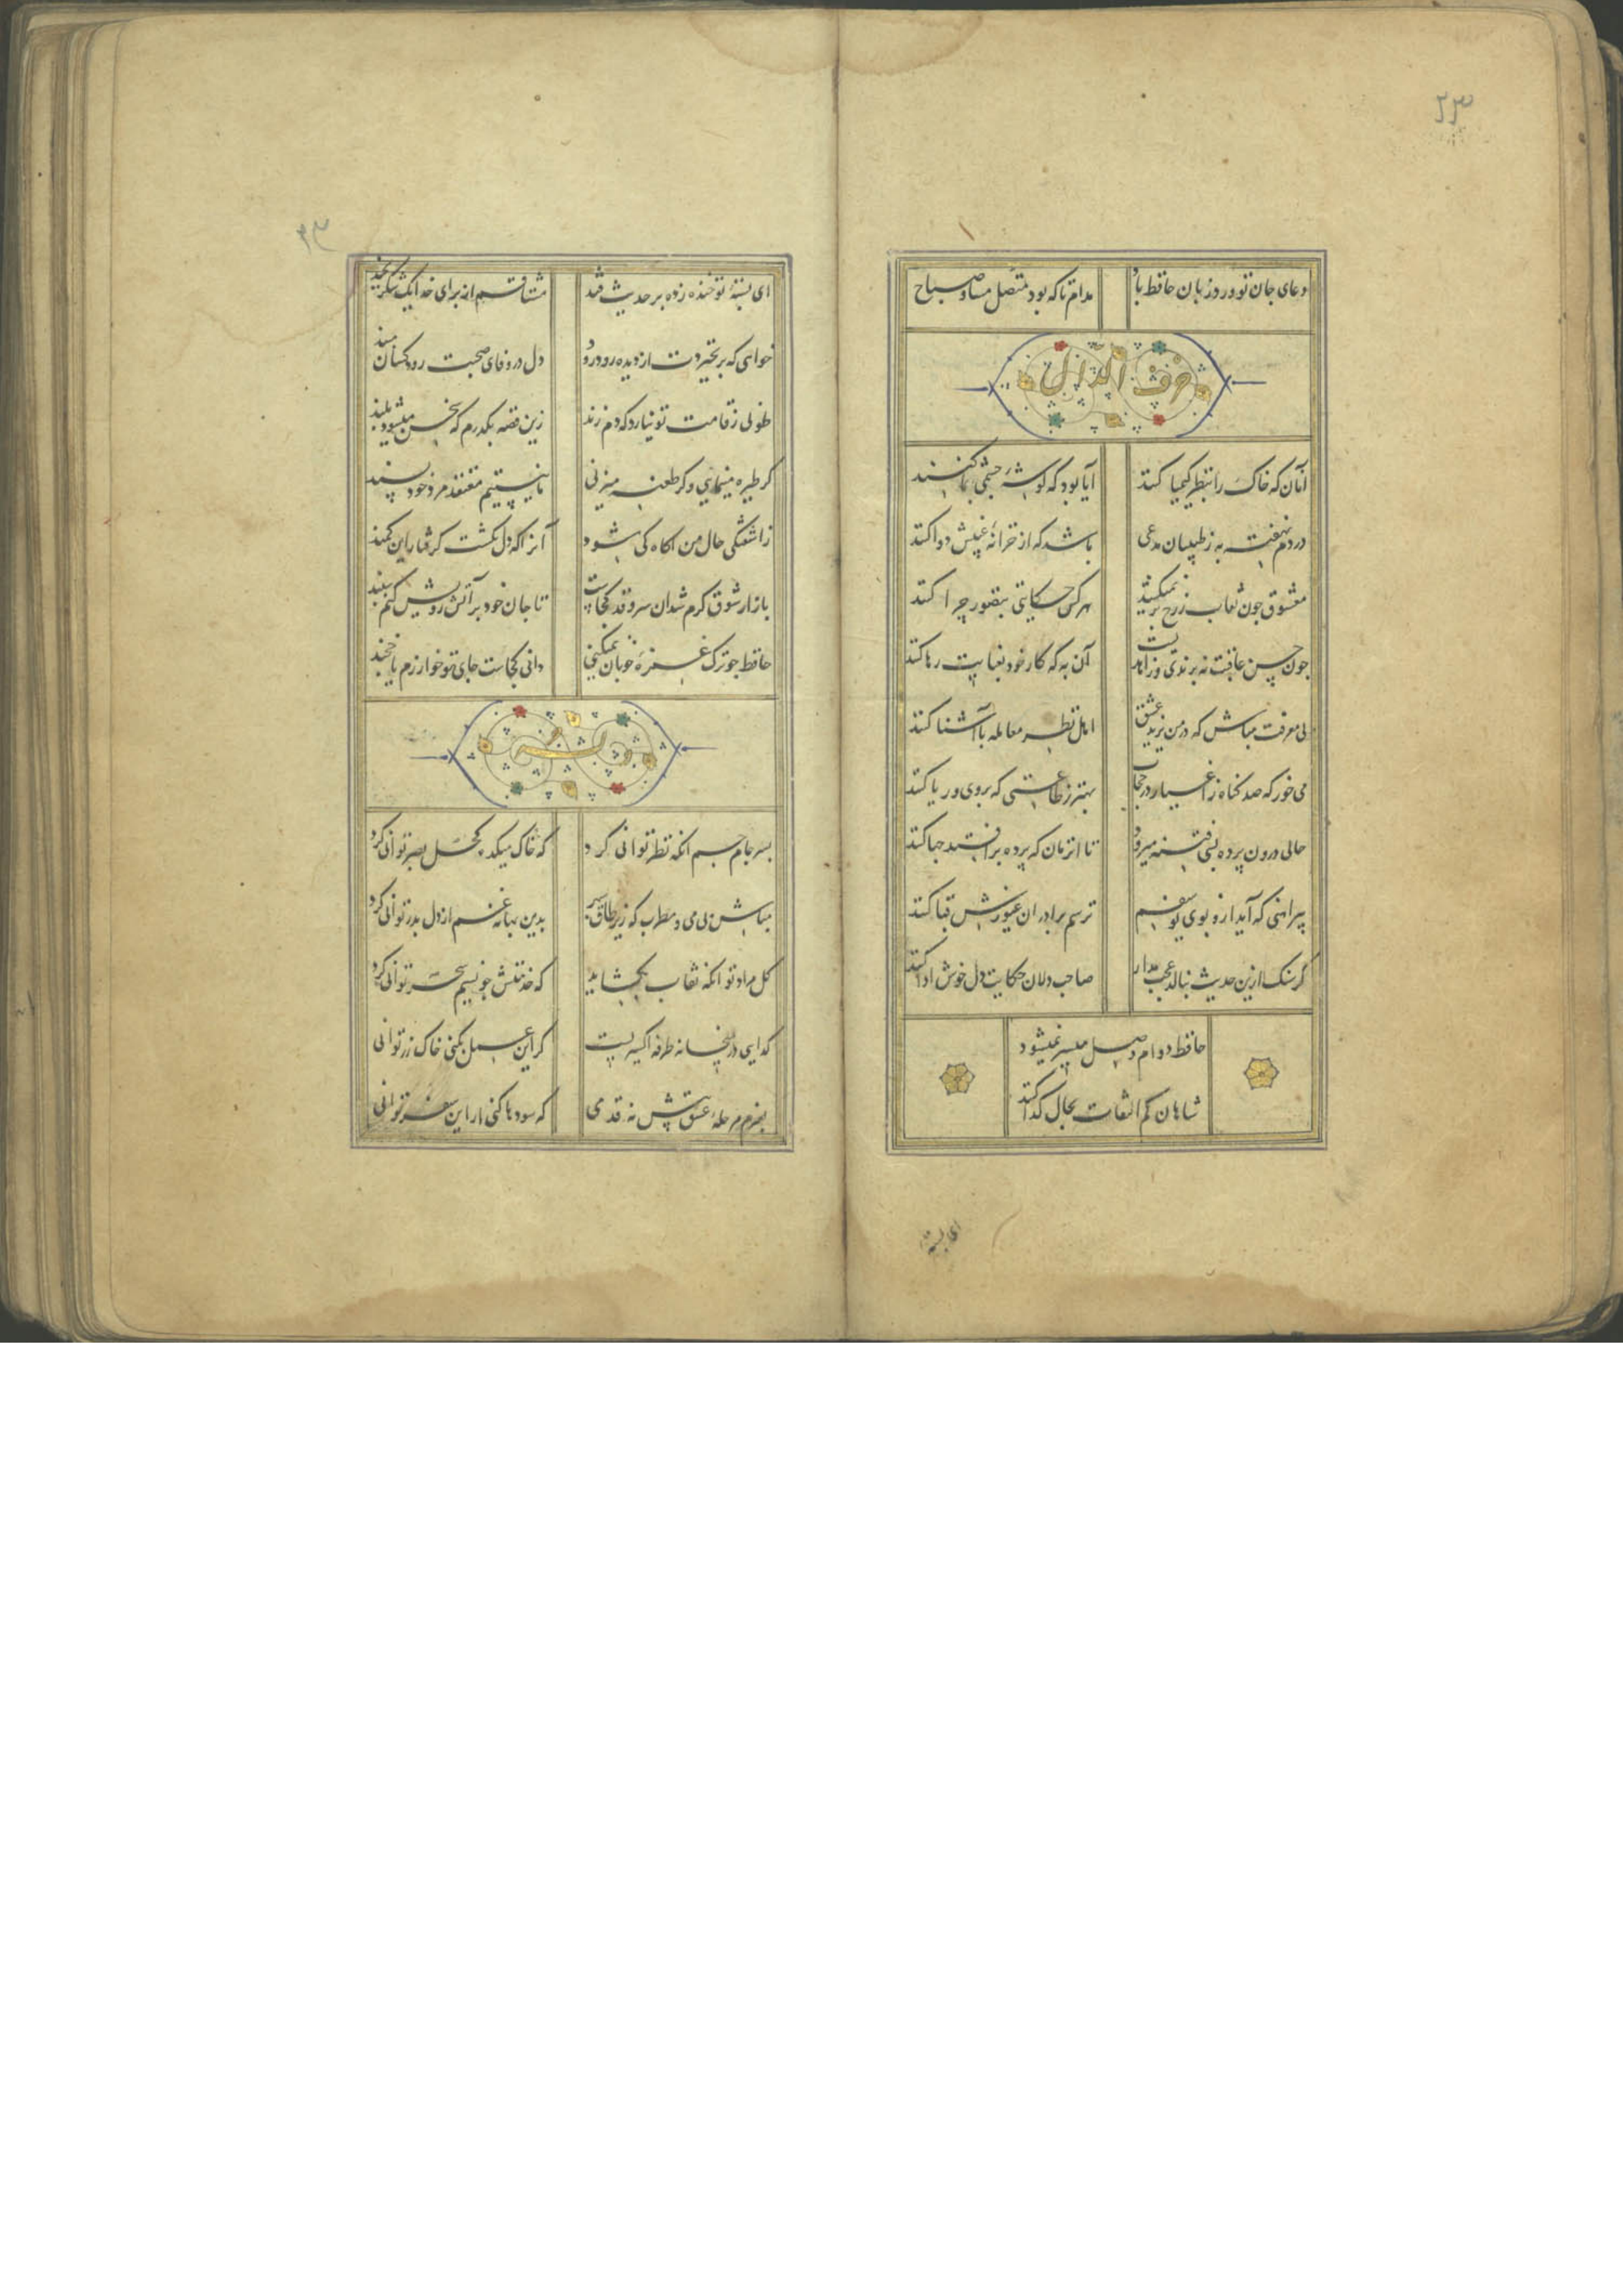 ۳۳
دعای جان تو ورد زبان حافظ باد
مدام تا که بود متصل مسا و صباح
حرف الدال
آنان که خاک را بنظر کیمیا کنند
آیا بود که کوشهٔ چشمی بما کنند
دردم نهفته به ز طبیبان مدعی
باشد که از خزانهٔ غیبش دوا کنند
معشوق چون نقاب ز رخ بر نمیکشد
هر کس حکایتی بتصور چرا کنند
چون حسن عاقبت نه برندی و زاهدیست
آن به که کار خود بعنایت رها کنند
بی معرفت مباش که در من یزید عشق
اهل نظر معامله با آشنا کنند
می خور که صد کناه ز اغیار در حجاب
بهتر ز طاعتی که بروی و ریا کنند
حالی درون پرده بسی فتنه میرود
تا آنزمان که پرده برافتد چها کنند
پیراهنی که آید ازو بوی یوسفم
ترسم برادران غیورش قبا کنند
کر سنک ازین حدیث بنالد عجب مدار
صاحب دلان حکایت دل خوش ادا کنند
حافظ دوام وصل میسر نمیشود
شاهان کم التفات بحال کدا کنند
ای پسته
۳۳
ای پستهٔ تو خنده زده بر حدیث قند
مشتاقم از برای خدا یک شکر بخند
خواهی که بر نخیزدت از دیده رود رود
دل در وفای صحبت رود کسان مبند
طوبی ز قامت تو نیارد که دم زند
زین قصه بکذرم که سخن میشود بلند
کر طیره مینمایی و کر طعنه میزنی
ما نیستیم معتقد مرد خود پسند
ز آشفتکی حال من آکاه کی شود
آنرا که دل نکشت کرفتار این کمند
بازار شوق کرم شد آن سرو قد کجاست
تا جان خود بر آتش رویش کنم سپند
حافظ چو ترک غمزهٔ خوبان نمیکنی
دانی کجاست جای تو خوارزم یا خجند
وله
بسر جام جم آنکه نظر توانی کرد
که خاک میکده کحل بصر توانی کرد
مباش بی می و مطرب که زیر طاق سپهر
بدین بهانه غم از دل بدر توانی کرد
کل مراد تو آنکه نقاب بکشاید
که خدمتش چو نسیم سحر توانی کرد
کدایی در میخانه طرفه اکسیریست
کر این عمل بکنی خاک زر توانی
بعزم مرحلهٔ عشق پیش نه قدمی
که سودها کنی ار این سفر توانی